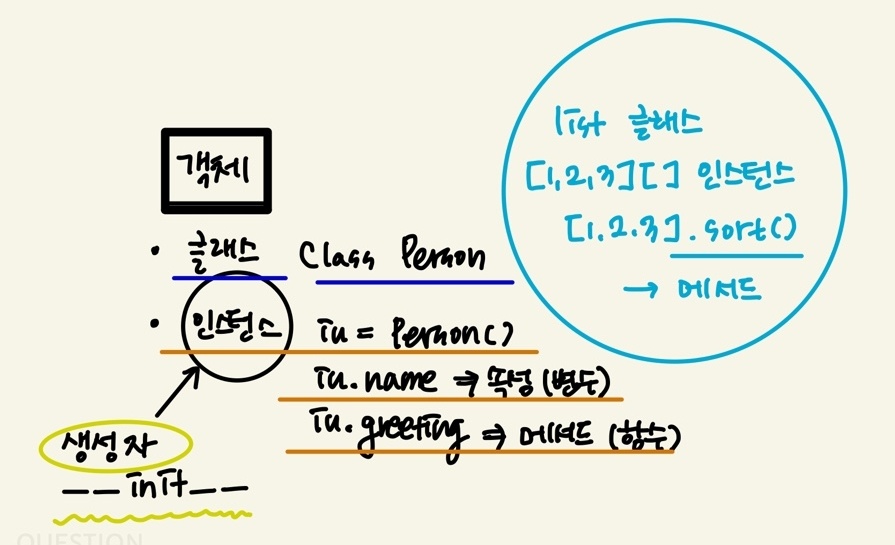 객체
• 클래스 Class Person
• 인스턴스 iu = Person()
iu.name ⇒ 속성 (변수)
iu.greeting ⇒ 메서드 (함수)
생성자
__init__
list 클래스
[1,2,3][] 인스턴스
[1.2.3].sort()
→ 메서드
QUESTION